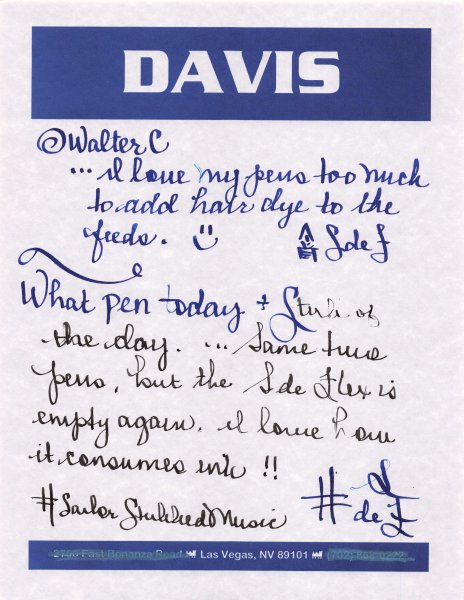 DAVIS
@WalterC
... I love my pens too much
to add hair dye to the
feeds. :)
S de F
What pen today +
the day. ... Same two
pens, but the S de Flex is
empty again. I love how
it consumes ink !!
#Sailor Stubbed Music
# S de F
2756 East Bonanza Road Las Vegas, NV 89101 (702)